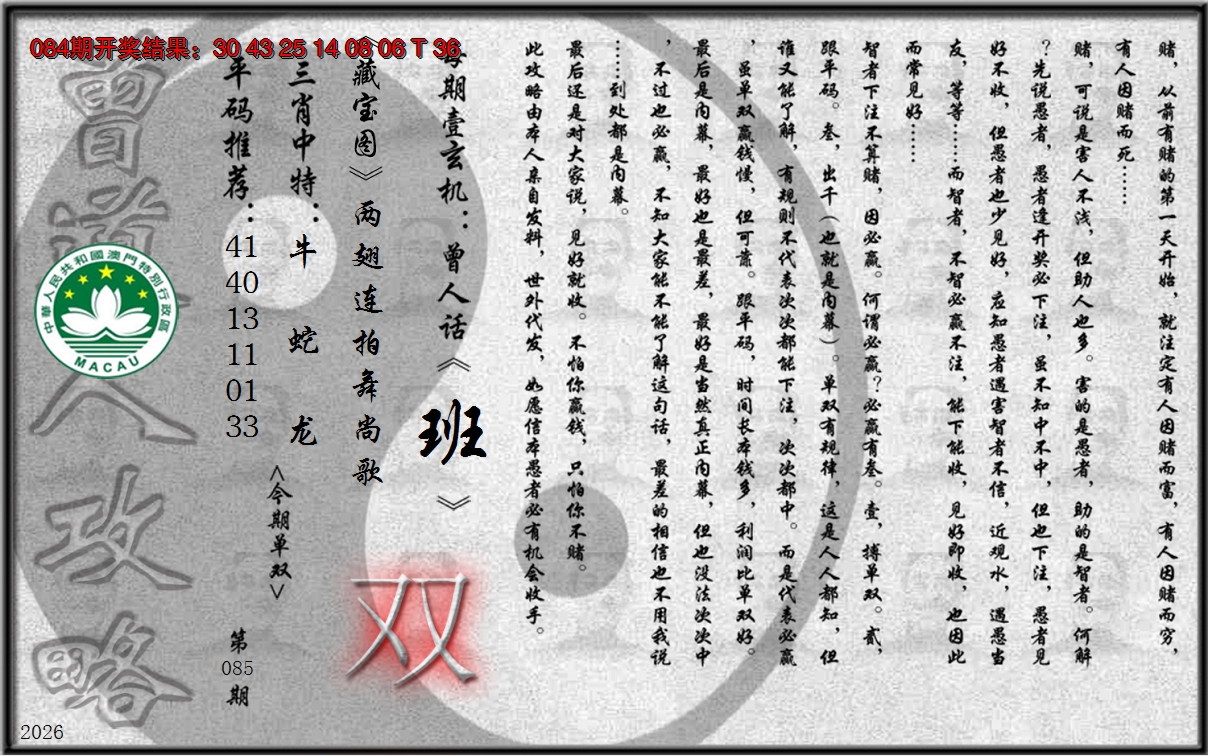 084期开奖结果：30 43 25 14 08 06 T 36
赌，从前有赌的第一天开始，就注定有人因赌而富，有人因赌而穷，
有人因赌而死……
赌，可说是害人不浅，但助人也多。害的是愚者，助的是智者。何解
？先说愚者，愚者逢开奖必下注，虽不知中不中，但也下注，愚者见
好不收，但愚者也少见好，应知愚者遇害智者不信，近观水，遇愚当
友，等等……而智者，不智必赢不注，能下能收，见好即收，也因此
而常见好……
智者下注不算赌，因必赢。何谓必赢？必赢有叁。壹，搏单双。贰，
跟平码。叁，出千（也就是内幕）。单双有规律，这是人人都知，但
谁又能了解，有规则不代表次次都能下注，次次都中。而是代表必赢
，虽单双赢钱慢，但可靠。跟平码，时间长本钱多，利润比单双好。
最后是内幕，最好也是最差，最好是当然真正内幕，但也没法次次中
，不过也必赢，不知大家能不能了解这句话，最差的相信也不用我说
……到处都是内幕。
最后还是对大家说，见好就收。不怕你赢钱，只怕你不赌。
此攻略由本人亲自发料，世外代发，如愿信本愚者必有机会收手。
每期壹玄机：曾人话《班》
《藏宝图》两翅连拍舞尚歌
双
三肖中特：牛 蛇 龙
<今期单双>
平码推荐：41 40 13 11 01 33
第085期
曾道人攻略
中華人民共和國澳門特別行政區
MACAU
2026